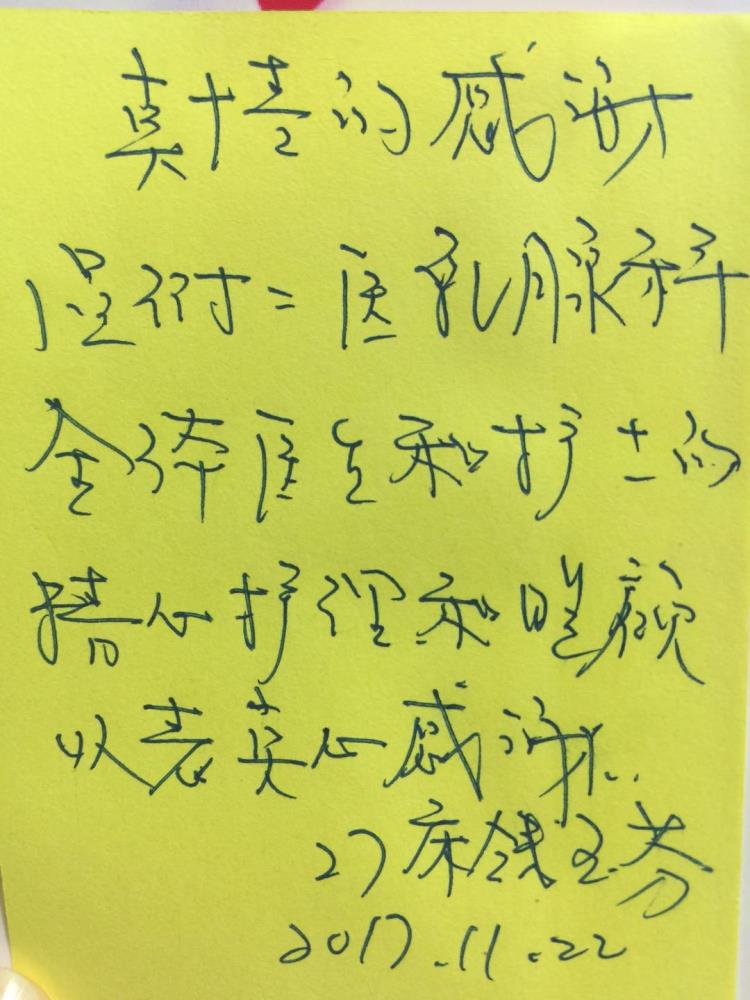 真情的感谢
浞附二医乳腺科
全体医生和护士的
精心护理和照顾
以表真心感谢..
27床钱玉芬
2017.11.22